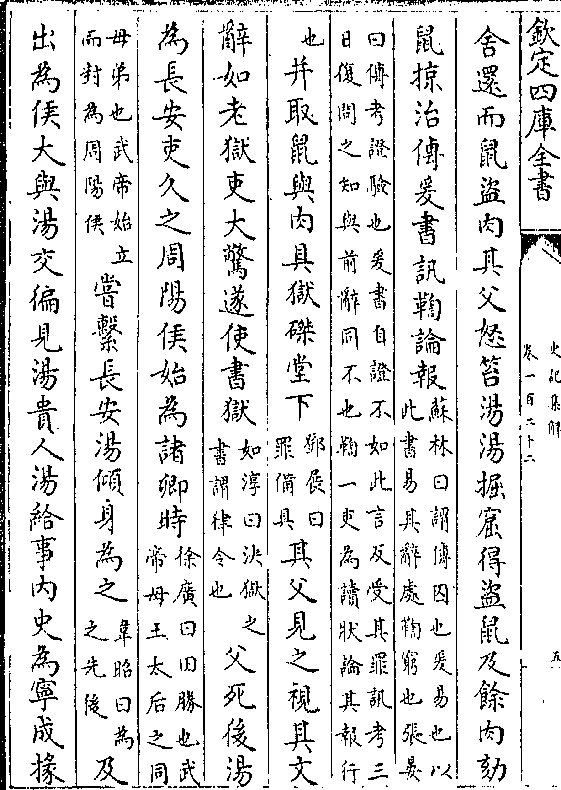 欽定四庫全書
史記集解
卷一百二十二
五
舍還而鼠盜肉其父怒笞湯湯掘窟得盜鼠及餘肉劾
鼠掠治傳爰書訊鞫論報
蘇林曰謂傳囚也爰易也以
此書易其辭處鞫窮也張晏
曰傳考證驗也爰書自證不如此言反受其罪訊考三
日復問之知與前辭同不也鞫一吏為讀狀論其報行
也
并取鼠與肉具獄磔堂下
鄧展曰
罪備具
其父見之視其文
辭如老獄吏大驚遂使書獄
如淳曰決獄之
書謂律令也
父死後湯
為長安吏久之周陽侯始為諸卿時
徐廣曰田勝也武
帝母王太后之同
母弟也武帝始立
而封為周陽侯
嘗繫長安湯傾身為之
韋昭曰為
之先後
及
出為侯大與湯交徧見湯貴人湯給事內史為寧成掾